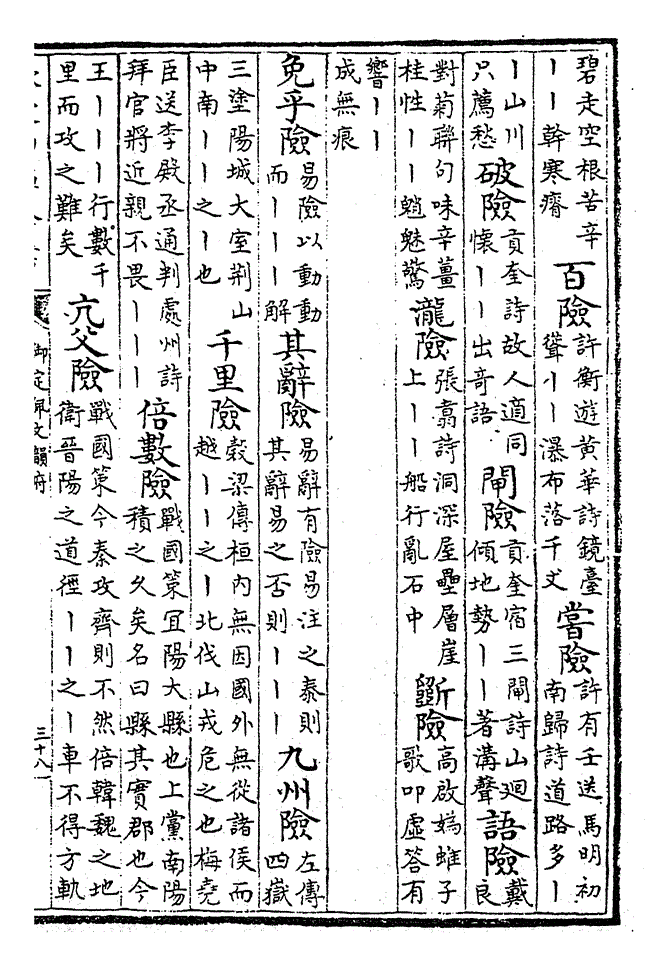 碧走空根苦辛丨丨幹寒瘠 百險 許衡遊黄華詩鏡臺聳丨丨瀑布落千丈 嘗險 許有壬送馬明初南歸詩道路多丨
丨山川只薦愁 破險 貢奎詩故人適同懷丨丨出奇語 閘險 貢奎宿三閘詩山廻傾地勢丨丨著溝聲 語險 戴良
對菊聯句味辛薑桂性丨丨魈魅驚 瀧險 張翥詩洞深屋壘層崖上丨丨船行亂石中 斵險 高啟媯蜼子歌叩虛答有
響丨丨成無痕
免乎險 易險以動動而丨丨丨解 其辭險 易辭有險易注之泰則其辭易之否則丨丨丨 九州險 左傳四嶽
三塗陽城大室荆山中南丨丨之丨也 千里險 穀梁傳桓内無因國外無從諸侯而越丨丨之丨北伐山戎危之也梅堯
臣送李殿丞通判處州詩拜官將近親不畏丨丨丨 倍數險 戰國策宜陽大縣也上黨南陽積之久矣名曰縣其實郡也今
王丨丨丨行數千里而攻之難矣 亢父險 戰國策今秦攻齊則不然倍韓魏之地衛晉陽之道徑丨丨之丨車不得方軌
御定佩文韻府
三十八